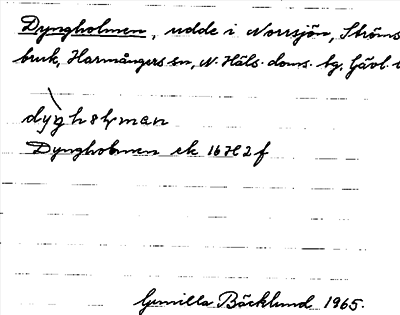 Dyngholmen, udde i Norrsjön, Ströms
bruk, Harmångers sn, N. Häls. doms. tg. Gävl.
Dyngholmen ek 16H2f
Gunilla Bäcklund 1965.